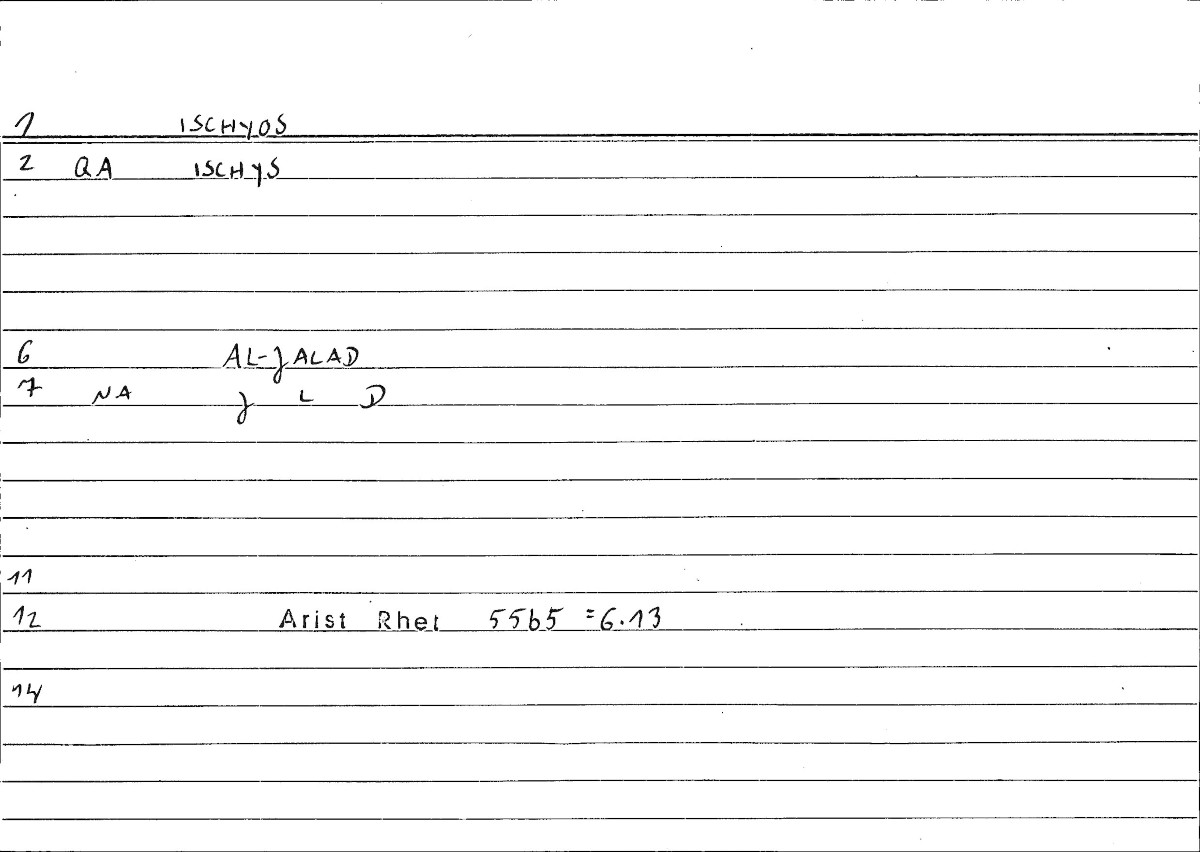 1 ISCHYOS
2 QA ISCHYS
6 AL-JALAD
7 NA J L D
11
12 Arist Rhet 55b5 =6.13
14